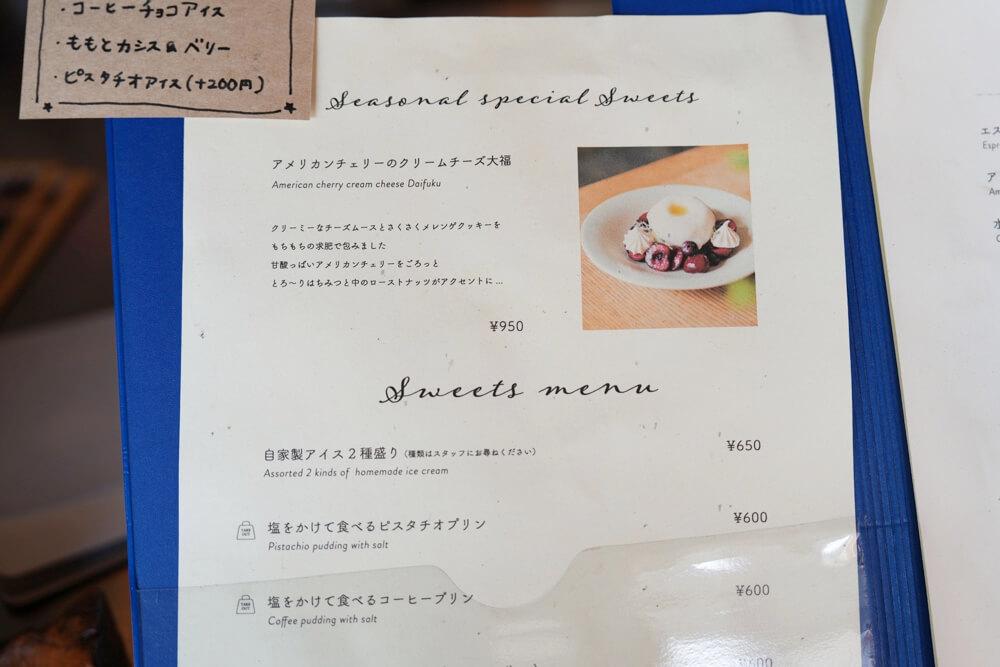 ・コーヒーチョコアイス
・ももとカシス&ベリー
・ピスタチオアイス(+200円)
Seasonal special Sweets
アメリカンチェリーのクリームチーズ大福
American cherry cream cheese Daifuku
クリーミーなチーズムースとさくさくメレンゲクッキーを
もちもちの求肥で包みました
甘酸っぱいアメリカンチェリーをごろっと
とろ〜りはちみつと中のローストナッツがアクセントに...
¥950
Sweets menu
自家製アイス2種盛り(種類はスタッフにお尋ねください) ¥650
Assorted 2 kinds of homemade ice cream
TAKE OUT 塩をかけて食べるピスタチオプリン ¥600
Pistachio pudding with salt
TAKE OUT 塩をかけて食べるコーヒープリン ¥600
Coffee pudding with salt
¥600
エス
Espr
ア
Am